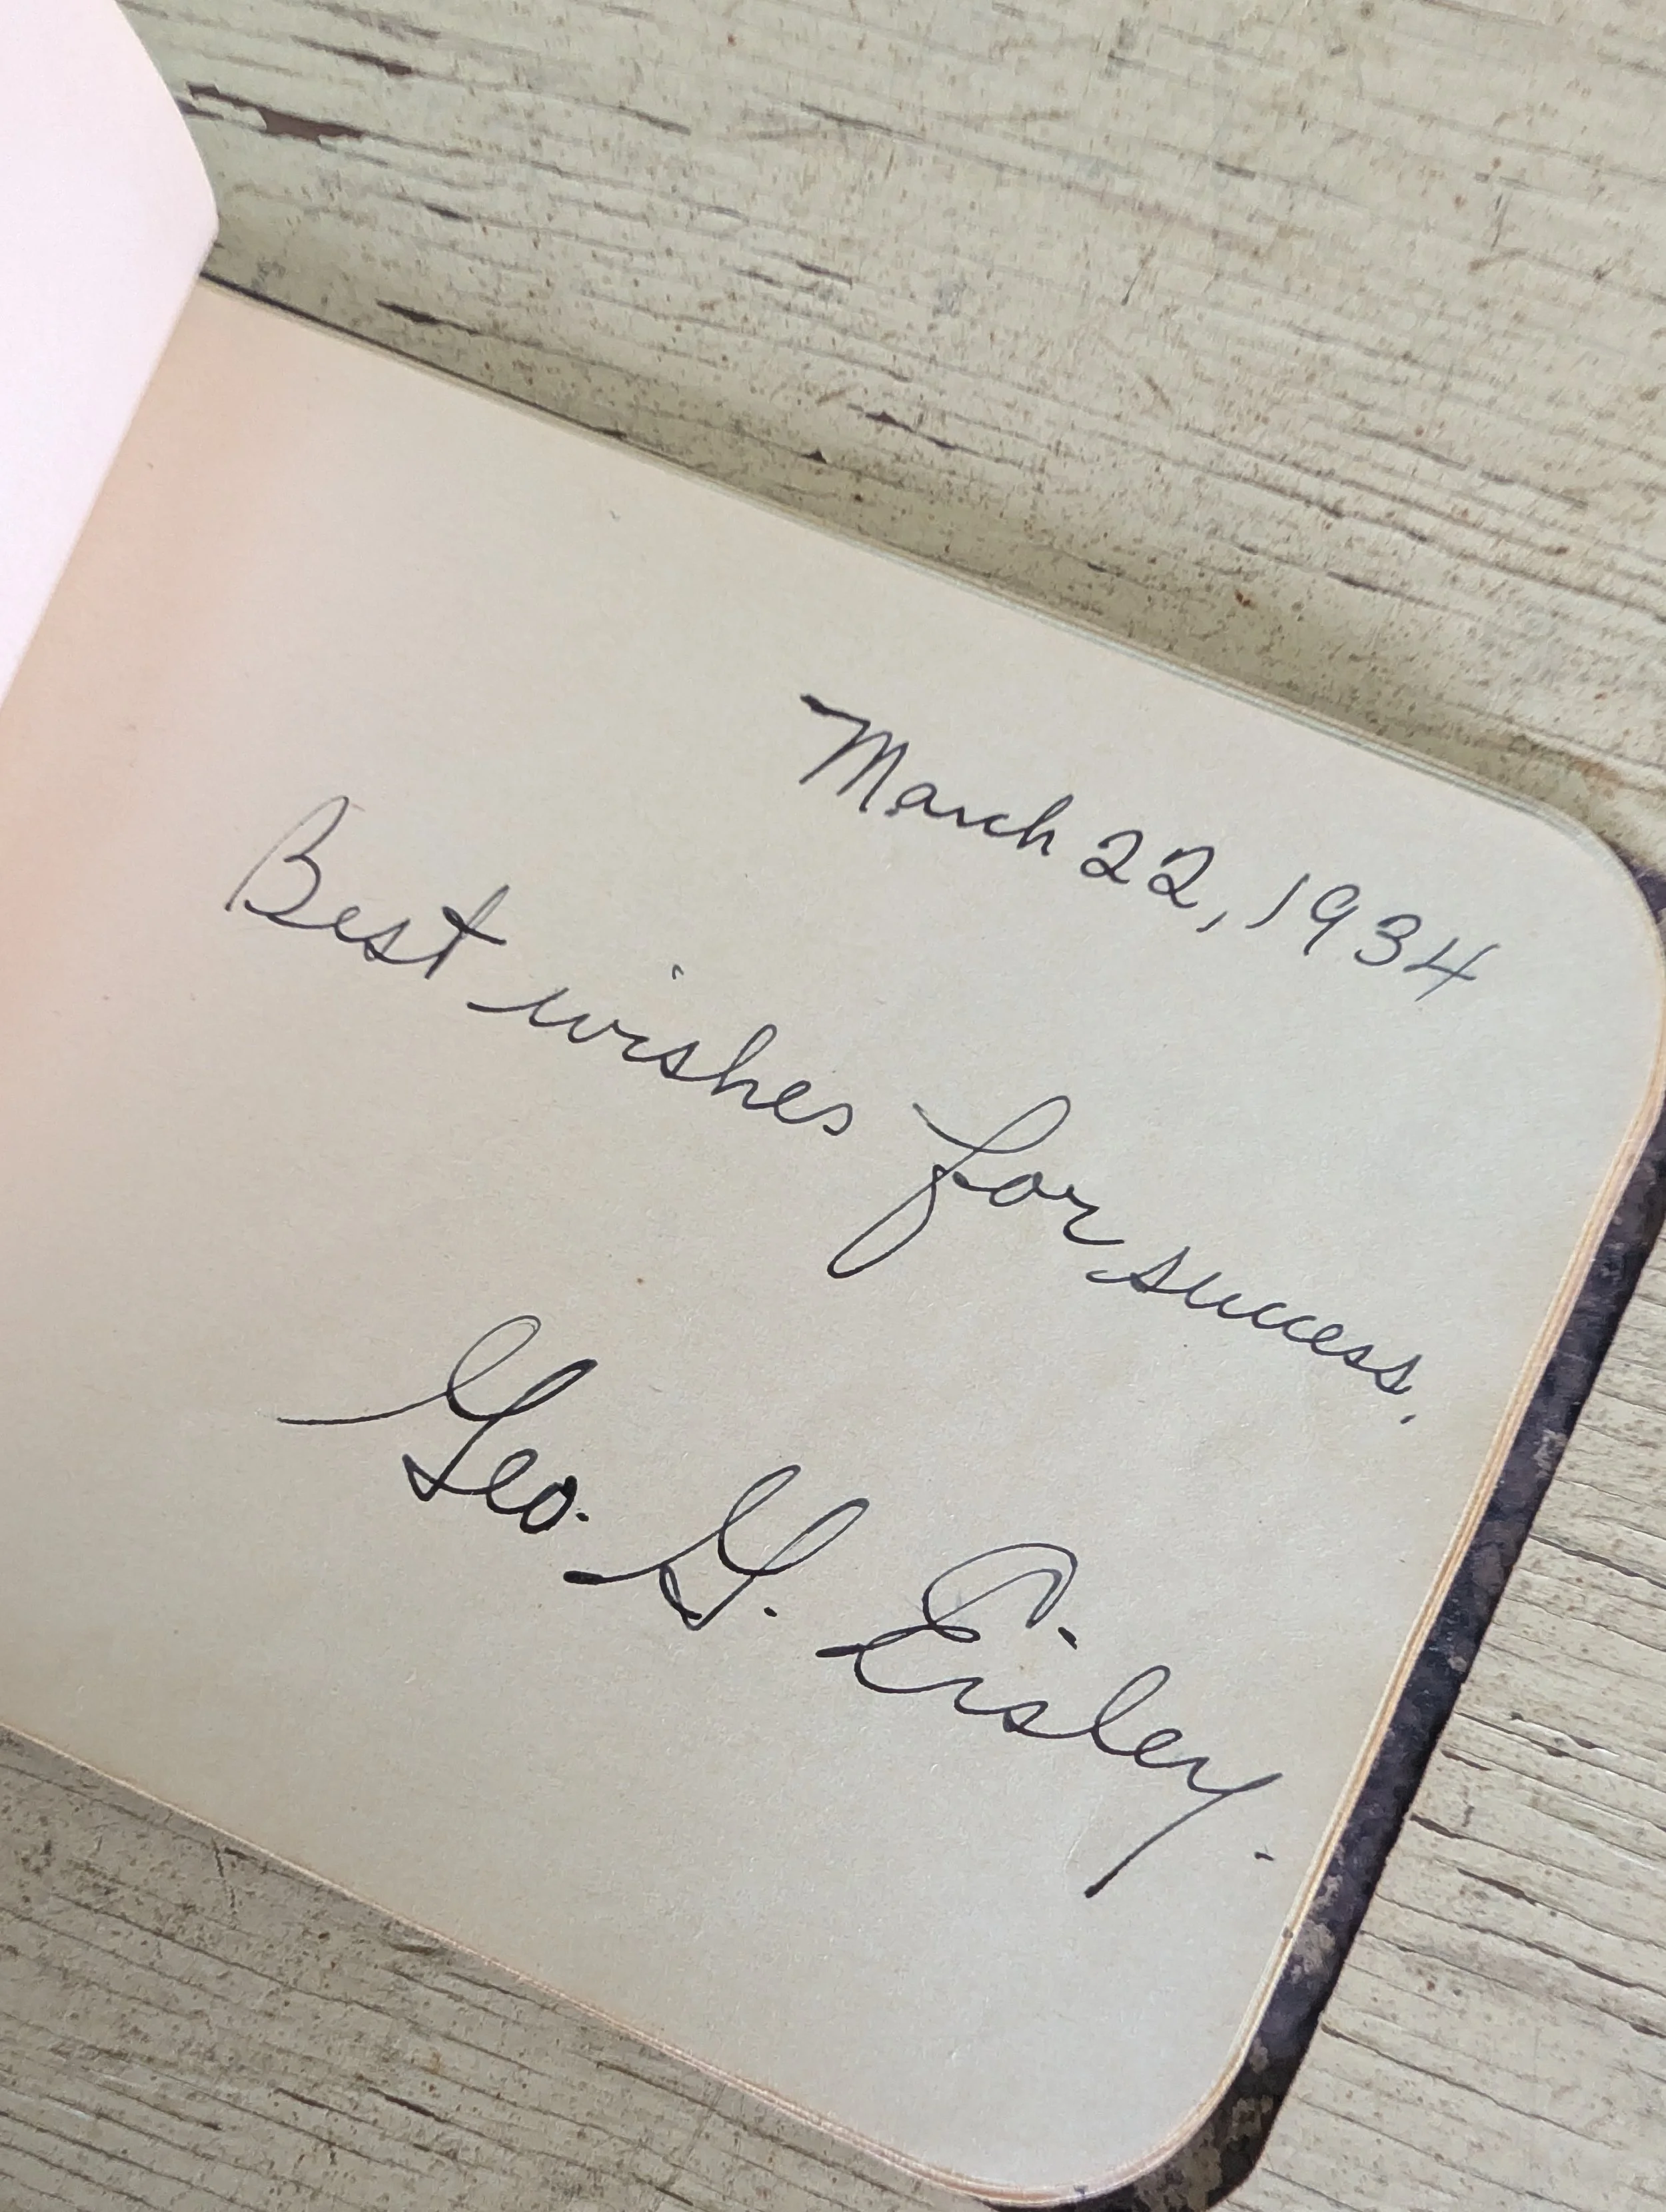 March 22, 1934
Best wishes for success.
Geo. G. Eisley.